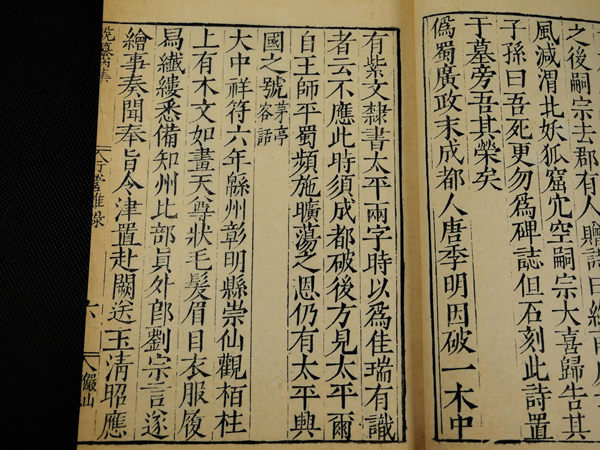 之後嗣宗去郡有人贈詩曰終南處
風減渭北妖狐窟宂空嗣宗大喜歸告其
子孫曰吾死更勿爲碑誌但石刻此詩置
于墓旁吾其榮矣
僞蜀廣政末成都人唐季明因破一木中
有紫文隸書太平兩字時以爲佳瑞有識
者云不應此時須成都破後方見太平爾
自王師平蜀頻施曠蕩之恩仍有太平興
國之號茅亭客話
大中祥符六年緜州彰明縣崇仙觀栢柱
上有木文如畫天尊狀毛髮眉目衣服履
舄纖縷悉備知州比部員外郎劉宗言遂
繪事奏聞奉旨令津置赴闕送玉清昭應
行營雜錄
六
儼山